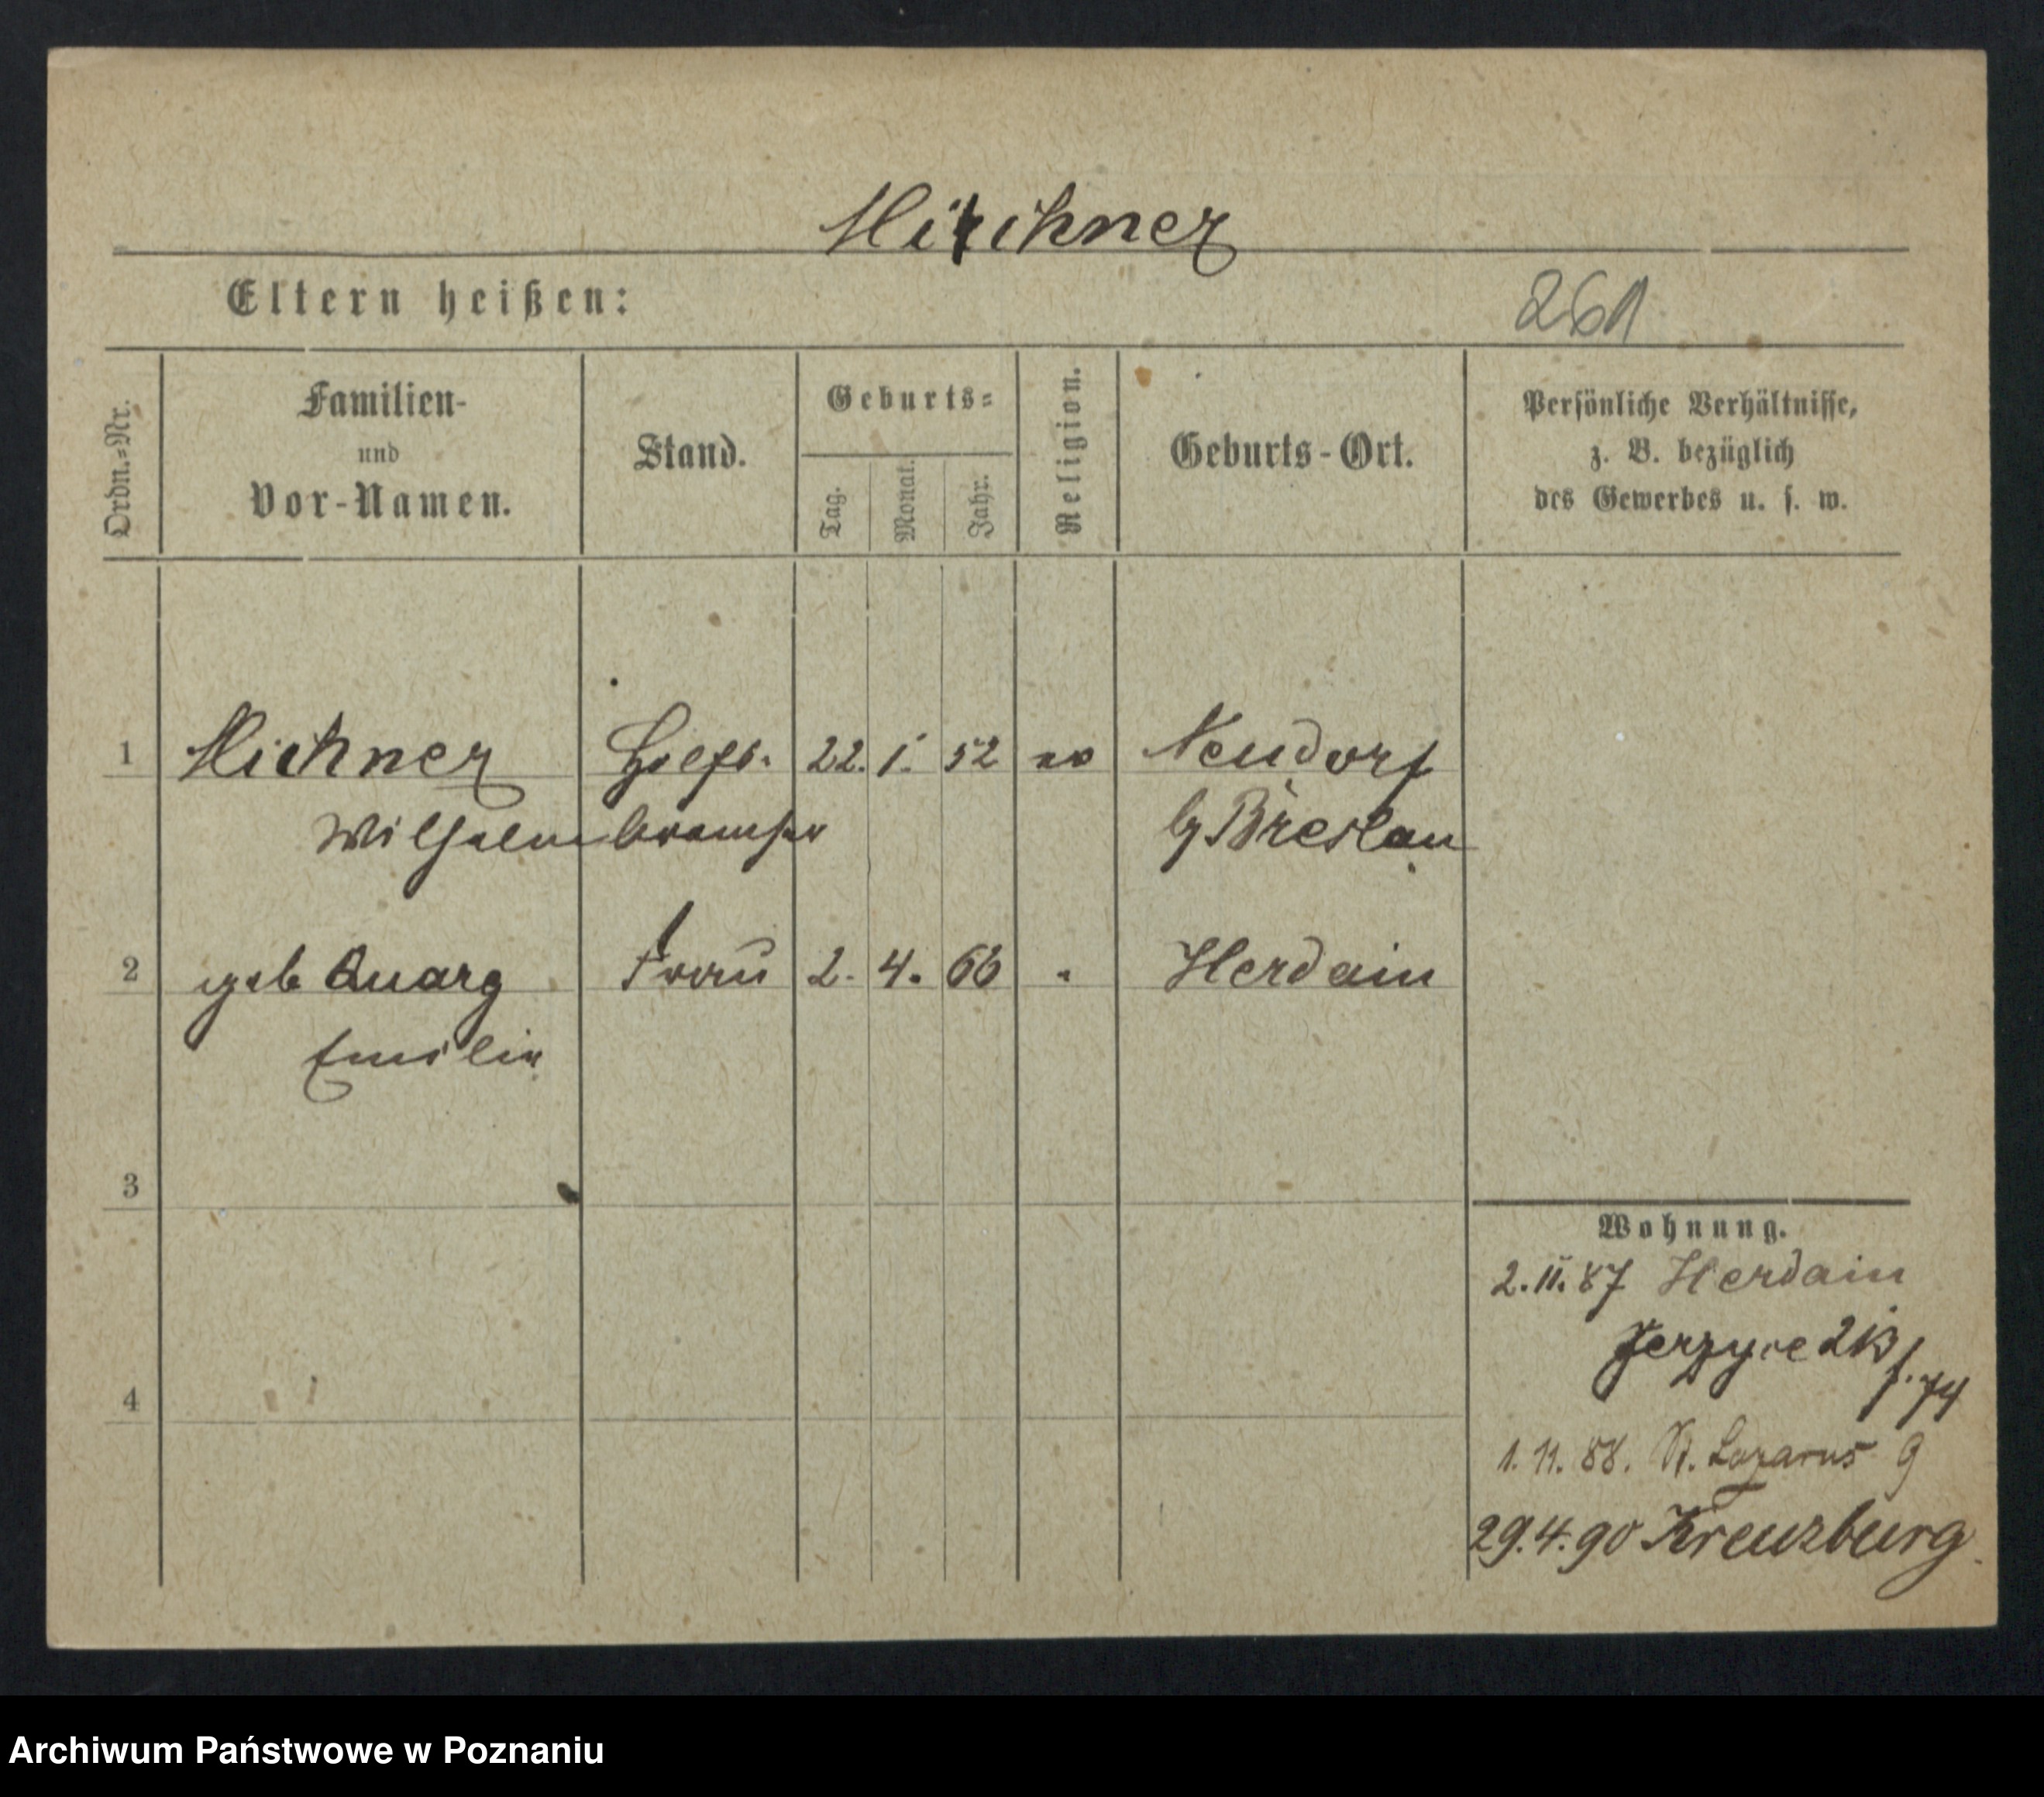 Mirichner
Eltern heißen:
261
Ordn.-Nr.
Familien-
und
Vor-Namen.
Stand.
Geburts-
Tag.
Monat.
Jahr.
Religion.
Geburts-Ort.
Persönliche Verhältnisse,
z. B. bezüglich
des Gewerbes u. s. w.
1 Michner 22. 1. 52 Neudorf
Wilhelm bremser b/Breslau
2 geb Quarg Frau 2. 4. 66 " Herdain
Emilie
3
Wohnung.
2.11.87 Herdain
Jerzyce
4
1. 11. 88. St. Lazarus 9
29.4.90 Kreuzburg
Archiwum Państwowe w Poznaniu